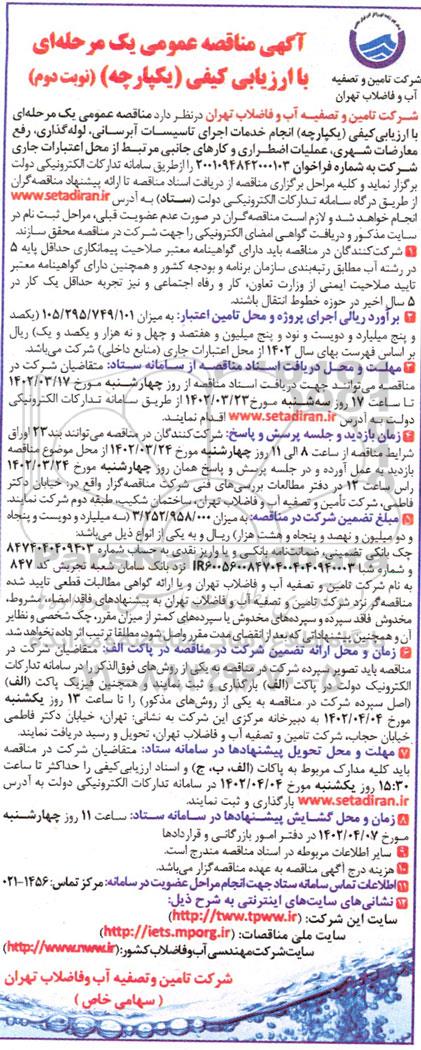 آگهی مناقصه عمومی یک مرحله‌ای
با ارزیابی کیفی (یکپارچه) (نوبت دوم)
شرکت تامین و تصفیه
آب و فاضلاب تهران
شرکت تامین و تصفیه آب و فاضلاب تهران درنظر دارد مناقصه عمومی یک مرحله‌ای
با ارزیابی کیفی (یکپارچه) انجام خدمات اجرای تاسیسات آبرسانی، لوله‌گذاری، رفع
معارضات شهری، عملیات اضطراری و کارهای جانبی مرتبط از محل اعتبارات جاری
شرکت به شماره فراخوان ۲۰۰۱۰۹۴۸۴۲۰۰۰۱۰۳ را ازطریق سامانه تدارکات الکترونیکی دولت
برگزار نماید و کلیه مراحل برگزاری مناقصه از دریافت اسناد مناقصه تا ارائه پیشنهاد مناقصه‌گران
از طریق درگاه سامانه تدارکات الکترونیکی دولت (ستاد) به آدرس www.setadiran.ir
انجام خواهد شد و لازم است مناقصه‌گران در صورت عدم عضویت قبلی، مراحل ثبت نام در
سایت مذکور و دریافت گواهی امضای الکترونیکی را جهت شرکت در مناقصه محقق سازند.
۱ شرکت‌کنندگان در مناقصه باید دارای گواهینامه معتبر صلاحیت پیمانکاری حداقل پایه ۵
در رشته آب مطابق رتبه‌بندی سازمان برنامه و بودجه کشور و همچنین دارای گواهینامه معتبر
تایید صلاحیت ایمنی از وزارت تعاون، کار و رفاه اجتماعی و نیز تجربه حداقل یک کار در
۵ سال اخیر در حوزه خطوط انتقال باشند.
۲ برآورد ریالی اجرای پروژه و محل تامین اعتبار: به میزان ۱۰۵/۲۹۵/۷۴۹/۱۰۱ (یکصد
و پنج میلیارد و دویست و نود و پنج میلیون و هفتصد و چهل و نه هزار و یکصد و یک) ریال
بر اساس فهرست بهای سال ۱۴۰۲ از محل اعتبارات جاری (منابع داخلی) شرکت می‌باشد.
۳ مهلت و محل دریافت اسناد مناقصه از سامانه ستاد: متقاضیان شرکت در
مناقصه می‌توانند جهت دریافت اسناد مناقصه از روز چهارشنبه مورخ ۱۴۰۲/۰۳/۱۷
تا ساعت ۱۷ روز سه‌شنبه مورخ ۱۴۰۲/۰۳/۲۳ از طریق سامانه تدارکات الکترونیکی
دولت به آدرس www.setadiran.ir اقدام نمایند.
۴ زمان بازدید و جلسه پرسش و پاسخ: شرکت‌کنندگان در مناقصه می‌توانند بند ۲۳ اوراق
شرایط مناقصه از ساعت ۸ الی ۱۱ روز چهارشنبه مورخ ۱۴۰۲/۰۳/۲۴ از محل موضوع مناقصه
بازدید به عمل آورده و در جلسه پرسش و پاسخ همان روز چهارشنبه مورخ ۱۴۰۲/۰۳/۲۴
راس ساعت ۱۲ در دفتر مطالعات بررسی‌های فنی شرکت مناقصه‌گزار واقع در: خیابان دکتر
فاطمی، شرکت تامین و تصفیه آب و فاضلاب تهران، ساختمان شکیب، طبقه دوم شرکت نمایند.
۵ مبلغ تضمین شرکت در مناقصه: به میزان ۳/۲۵۲/۹۵۸/۰۰۰ (سه میلیارد و دویست و پنجاه
و دو میلیون و نهصد و پنجاه و هشت هزار) ریال و به یکی از انواع ذیل می‌باشد:
چک بانکی تضمینی، ضمانت‌نامه بانکی و یا واریز نقدی به حساب شماره
و شماره شبا نزد بانک سامان شعبه تجریش کد ۸۴۷
به نام شرکت تامین و تصفیه آب و فاضلاب تهران و یا ارائه گواهی مطالبات قطعی تایید شده
مناقصه‌گر نزد شرکت تامین و تصفیه آب و فاضلاب تهران به پیشنهادهای فاقد امضاء، مشروط،
مخدوش فاقد سپرده و سپرده‌های مخدوش یا سپرده‌های کمتر از میزان مقرر، چک شخصی و نظایر
آن و همچنین پیشنهاداتی که بعد از انقضای مدت مقرر واصل شود، مطلقا ترتیب اثر داده نخواهد شد.
۶ زمان و محل ارائه تضمین شرکت در مناقصه در پاکت الف: متقاضیان شرکت در
مناقصه باید تصویر سپرده شرکت در مناقصه به یکی از روش‌های فوق‌الذکر را در سامانه تدارکات
الکترونیک دولت در پاکت (الف) بارگذاری و ثبت نمایند و همچنین فیزیک پاکت (الف)
(اصل سپرده شرکت در مناقصه به یکی از روش‌های مذکور) را تا ساعت ۱۳ روز یکشنبه
مورخ ۱۴۰۲/۰۴/۰۴ به دبیرخانه مرکزی این شرکت به نشانی: تهران، خیابان دکتر فاطمی
خیابان حجاب، شرکت تامین و تصفیه آب و فاضلاب تهران، تحویل و رسید دریافت نمایند.
۷ مهلت و محل تحویل پیشنهادها در سامانه ستاد: متقاضیان شرکت در مناقصه
باید کلیه مدارک مربوط به پاکات (الف، ب، ج) و اسناد ارزیابی کیفی را حداکثر تا ساعت
۱۵:۳۰ روز یکشنبه مورخ ۱۴۰۲/۰۴/۰۴ در سامانه تدارکات الکترونیکی دولت به آدرس
www.setadiran.ir بارگذاری و ثبت نمایند.
۸ زمان و محل گشایش پیشنهادها در سامانه ستاد: ساعت ۱۱ روز چهارشنبه
مورخ ۱۴۰۲/۰۴/۰۷ در دفتر امور بازرگانی و قراردادها
۹ سایر اطلاعات مربوطه در اسناد مناقصه مندرج است.
۱۰ هزینه درج آگهی مناقصه به عهده مناقصه‌گزار می‌باشد.
۱۱ اطلاعات تماس سامانه ستاد جهت انجام مراحل عضویت در سامانه: مرکز تماس: ۱۴۵۶-۰۲۱
۱۲ نشانی‌های سایت‌های اینترنتی به شرح ذیل:
سایت این شرکت: (http://tww.tpww.ir)
سایت ملی مناقصات: (http://iets.mporg.ir)
سایت شرکت مهندسی آب و فاضلاب کشور: (http://www.nww.ir)
شرکت تامین و تصفیه آب و فاضلاب تهران
(سهامی خاص)